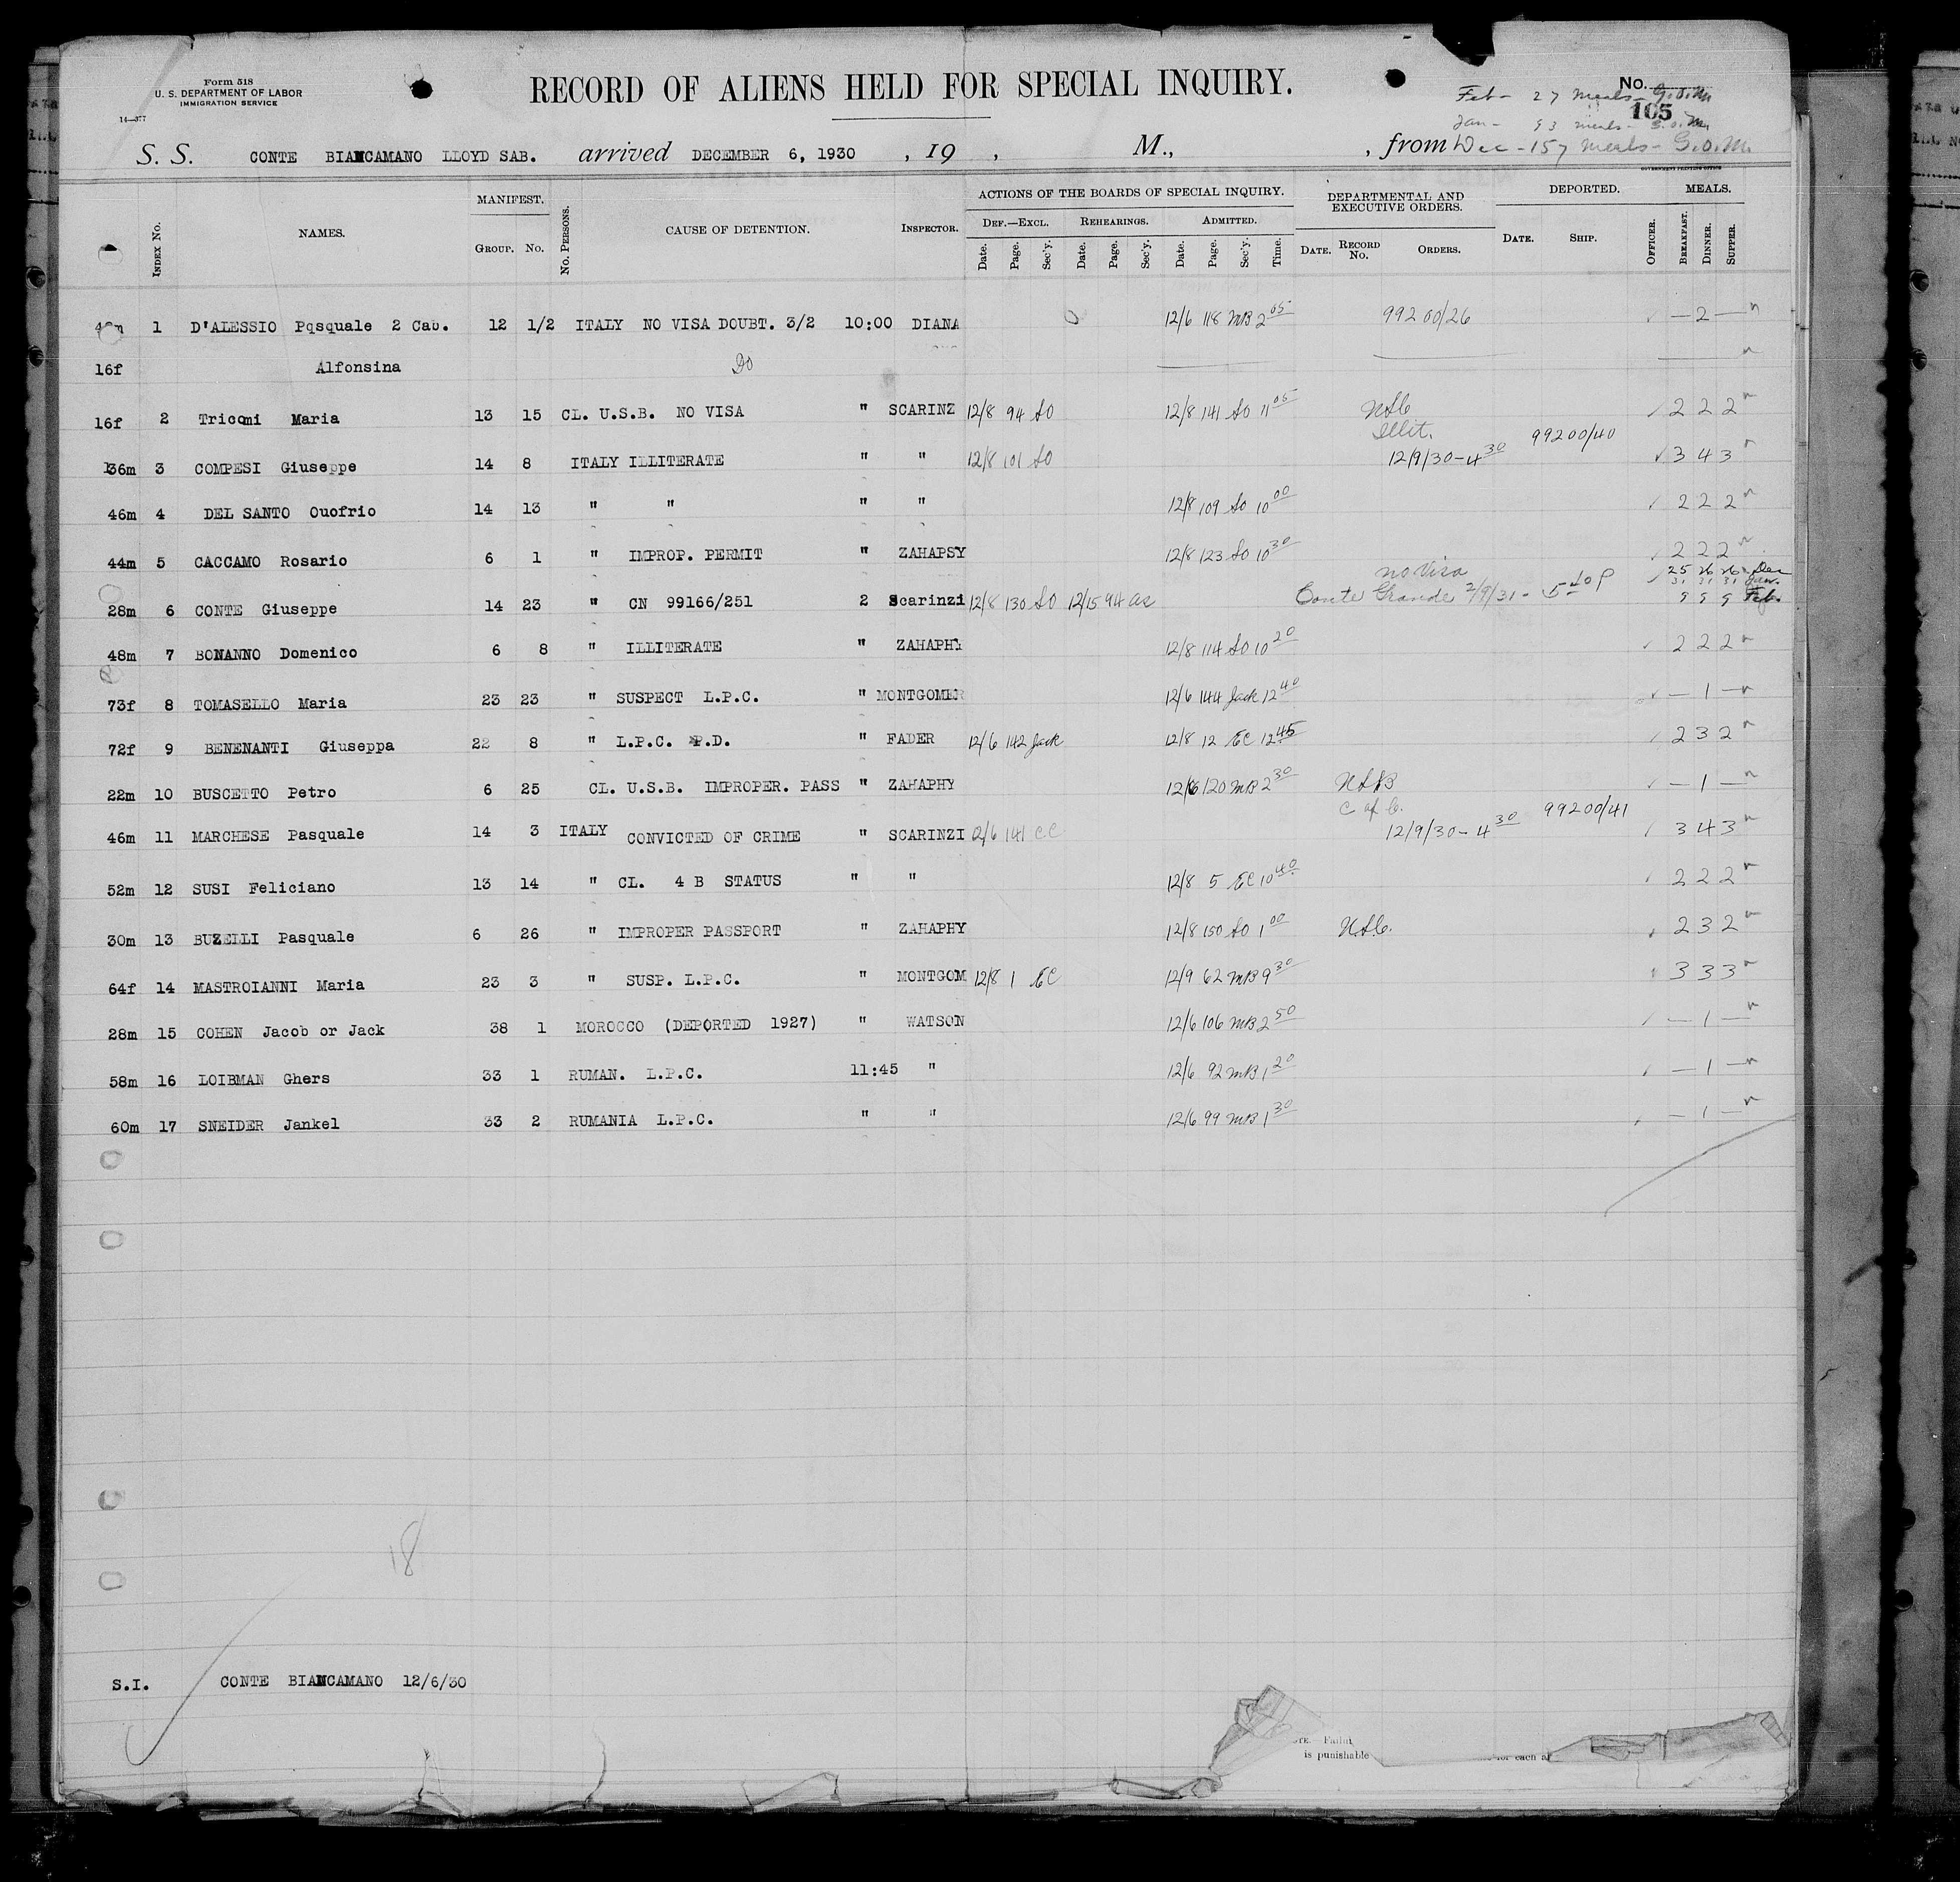 Form 518
U. S. DEPARTMENT OF LABOR
IMMIGRATION SERVICE
14—377
RECORD OF ALIENS HELD FOR SPECIAL INQUIRY.
No.
105
Feb - 27 meals - G.O.M.
Jan - 93 meals - G.O.M.
S. S. CONTE BIANCAMANO LLOYD SAB. arrived DECEMBER 6, 1930 , 19 , M., , from Dec - 157 meals - G.O.M.
GOVERNMENT PRINTING OFFICE
INDEX No. NAMES. MANIFEST. GROUP. No. No. PERSONS. CAUSE OF DETENTION. INSPECTOR. ACTIONS OF THE BOARDS OF SPECIAL INQUIRY. DEPARTMENTAL AND EXECUTIVE ORDERS. DEPORTED. MEALS.
DEF.—EXCL. REHEARINGS. ADMITTED.
Date. Page. Sec'y. Date. Page. Sec'y. Date. Page. Sec'y. Time. DATE. RECORD No. ORDERS. DATE. SHIP. OFFICER. BREAKFAST. DINNER. SUPPER.
1 D'ALESSIO Pqsquale 2 Cab. 12 1/2 ITALY NO VISA DOUBT. 3/2 10:00 DIANA 12/6 118 MB 2 05 99200/26 — 2 —
16f Alfonsina Do
16f 2 Tricomi Maria 13 15 CL. U.S.B. NO VISA " SCARINZ 12/8 94 SO 12/8 141 SO 11 05 2 2 2
Illit. 99200/40
36m 3 COMPESI Giuseppe 14 8 ITALY ILLITERATE " " 12/8 101 SO 12/9/30 - 4 30 3 4 3
46m 4 DEL SANTO Ouofrio 14 13 " " " " 12/8 109 SO 10 00 2 2 2
44m 5 CACCAMO Rosario 6 1 " IMPROP. PERMIT " ZAHAPSY 12/8 123 SO 10 30 2 2 2
no visa 25 26 26 Dec
31 31 31 Jan.
28m 6 CONTE Giuseppe 14 23 " CN 99166/251 2 Scarinzi 12/8 130 SO 12/15 94 as Conte Grande 2/9/31 - 9 9 9 Feb.
48m 7 BONANNO Domenico 6 8 " ILLITERATE " ZAHAPHY 12/8 114 SO 10 20 2 2 2
73f 8 TOMASELLO Maria 23 23 " SUSPECT L.P.C. " MONTGOMER 12/6 144 Jack 12 40 — 1 —
72f 9 BENENANTI Giuseppa 22 8 " L.P.C. P.D. " FADER 12/6 142 Jack 12/8 12 EC 12 45 2 3 2
22m 10 BUSCETTO Petro 6 25 CL. U.S.B. IMPROPER. PASS " ZAHAPHY 12/6 120 MB 2 30 — 1 —
C of C. 99200/41
46m 11 MARCHESE Pasquale 14 3 ITALY CONVICTED OF CRIME " SCARINZI 12/6 141 EC 12/9/30 - 4 30 3 4 3
52m 12 SUSI Feliciano 13 14 " CL. 4 B STATUS " " 12/8 5 EC 10 40 2 2 2
30m 13 BUZELLI Pasquale 6 26 " IMPROPER PASSPORT " ZAHAPHY 12/8 150 SO 1 00 2 3 2
64f 14 MASTROIANNI Maria 23 3 " SUSP. L.P.C. " MONTGOM 12/8 1 EC 12/9 62 MB 9 30 3 3 3
28m 15 COHEN Jacob or Jack 38 1 MOROCCO (DEPORTED 1927) " WATSON 12/6 106 MB 2 50 — 1 —
58m 16 LOIBMAN Ghers 33 1 RUMAN. L.P.C. 11:45 " 12/6 92 MB 1 20 — 1 —
60m 17 SNEIDER Jankel 33 2 RUMANIA L.P.C. " " 12/6 99 MB 1 30 — 1 —
18
S.I. CONTE BIANCAMANO 12/6/30
is punishable
for each